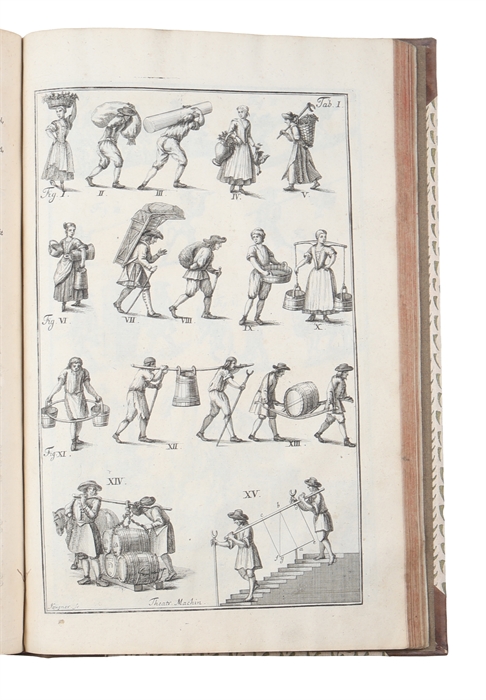 Tab. I
Fig I. II. III. IV. V.
Fig VI. VII VIII IX X.
Fig XI. XII XIII.
XIV. XV.
Theatr Machin